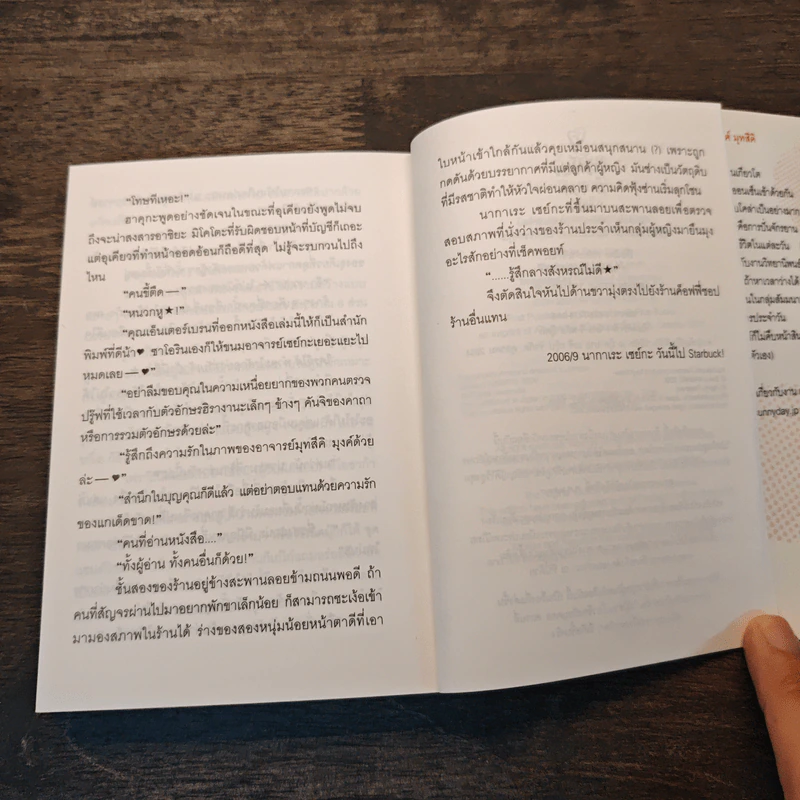 “โทษทีเหอะ!”
ฮาคุกะพูดอย่างชัดเจนในขณะที่อุเคียวยังพูดไม่จบ
ถึงจะน่าสงสารอาชิยะ มิโคโตะที่รับผิดชอบหน้าที่บัญชีก็เถอะ
แต่อุเคียวที่ทำหน้าออดอ้อนก็ถือดีที่สุด ไม่รู้จะรบกวนไปถึง
ไหน
“คนขี้ตืด—”
“หนวกหู★!”
“คุณเอ็นเตอร์เบรนที่ออกหนังสือเล่มนี้ให้ก็เป็นสำนัก
พิมพ์ที่ดีน้า♥ ซาโอรินเองก็ให้ขนมอาจารย์เซย์กะเยอะแยะไป
หมดเลย—♥”
“อย่าลืมขอบคุณในความเหนื่อยยากของพวกคนตรวจ
ปรู๊ฟที่ใช้เวลากับตัวอักษรฮิรางานะเล็กๆ ข้างๆ คันจิของคาถา
หรือการรวมตัวอักษรด้วยล่ะ”
“รู้สึกถึงความรักในภาพของอาจารย์มุทสึคิ มุงค์ด้วย
ล่ะ—♥”
“สำนึกในบุญคุณก็ดีแล้ว แต่อย่าตอบแทนด้วยความรัก
ของแกเด็ดขาด!”
“คนที่อ่านหนังสือ....”
“ทั้งผู้อ่าน ทั้งคนอื่นก็ด้วย!”
ชั้นสองของร้านอยู่ข้างสะพานลอยข้ามถนนพอดี ถ้า
คนที่สัญจรผ่านไปมาอยากพักขาเล็กน้อย ก็สามารถชะเง้อเข้า
มามองสภาพในร้านได้ ร่างของสองหนุ่มน้อยหน้าตาดีที่เอา
ใบหน้าเข้าใกล้กันแล้วคุยเหมือนสนุกสนาน (?) เพราะถูก
กดดันด้วยบรรยากาศที่มีแต่ลูกค้าผู้หญิง มันช่างเป็นวัตถุดิบ
ที่มีรสชาติทำให้หัวใจผ่อนคลาย ความคิดฟุ้งซ่านเริ่มลุกโชน
นากาเระ เซย์กะที่ขึ้นมาบนสะพานลอยเพื่อตรวจ
สอบสภาพที่นั่งว่างของร้านประจำเห็นกลุ่มผู้หญิงมายืนมุง
อะไรสักอย่างที่เช็คพอยท์
“......รู้สึกลางสังหรณ์ไม่ดี★”
จึงตัดสินใจหันไปด้านขวามุ่งตรงไปยังร้านค็อฟฟี่ชอป
ร้านอื่นแทน
2006/9 นากาเระ เซย์กะ วันนี้ไป Starbuck!
ค์ มุทสึคิ